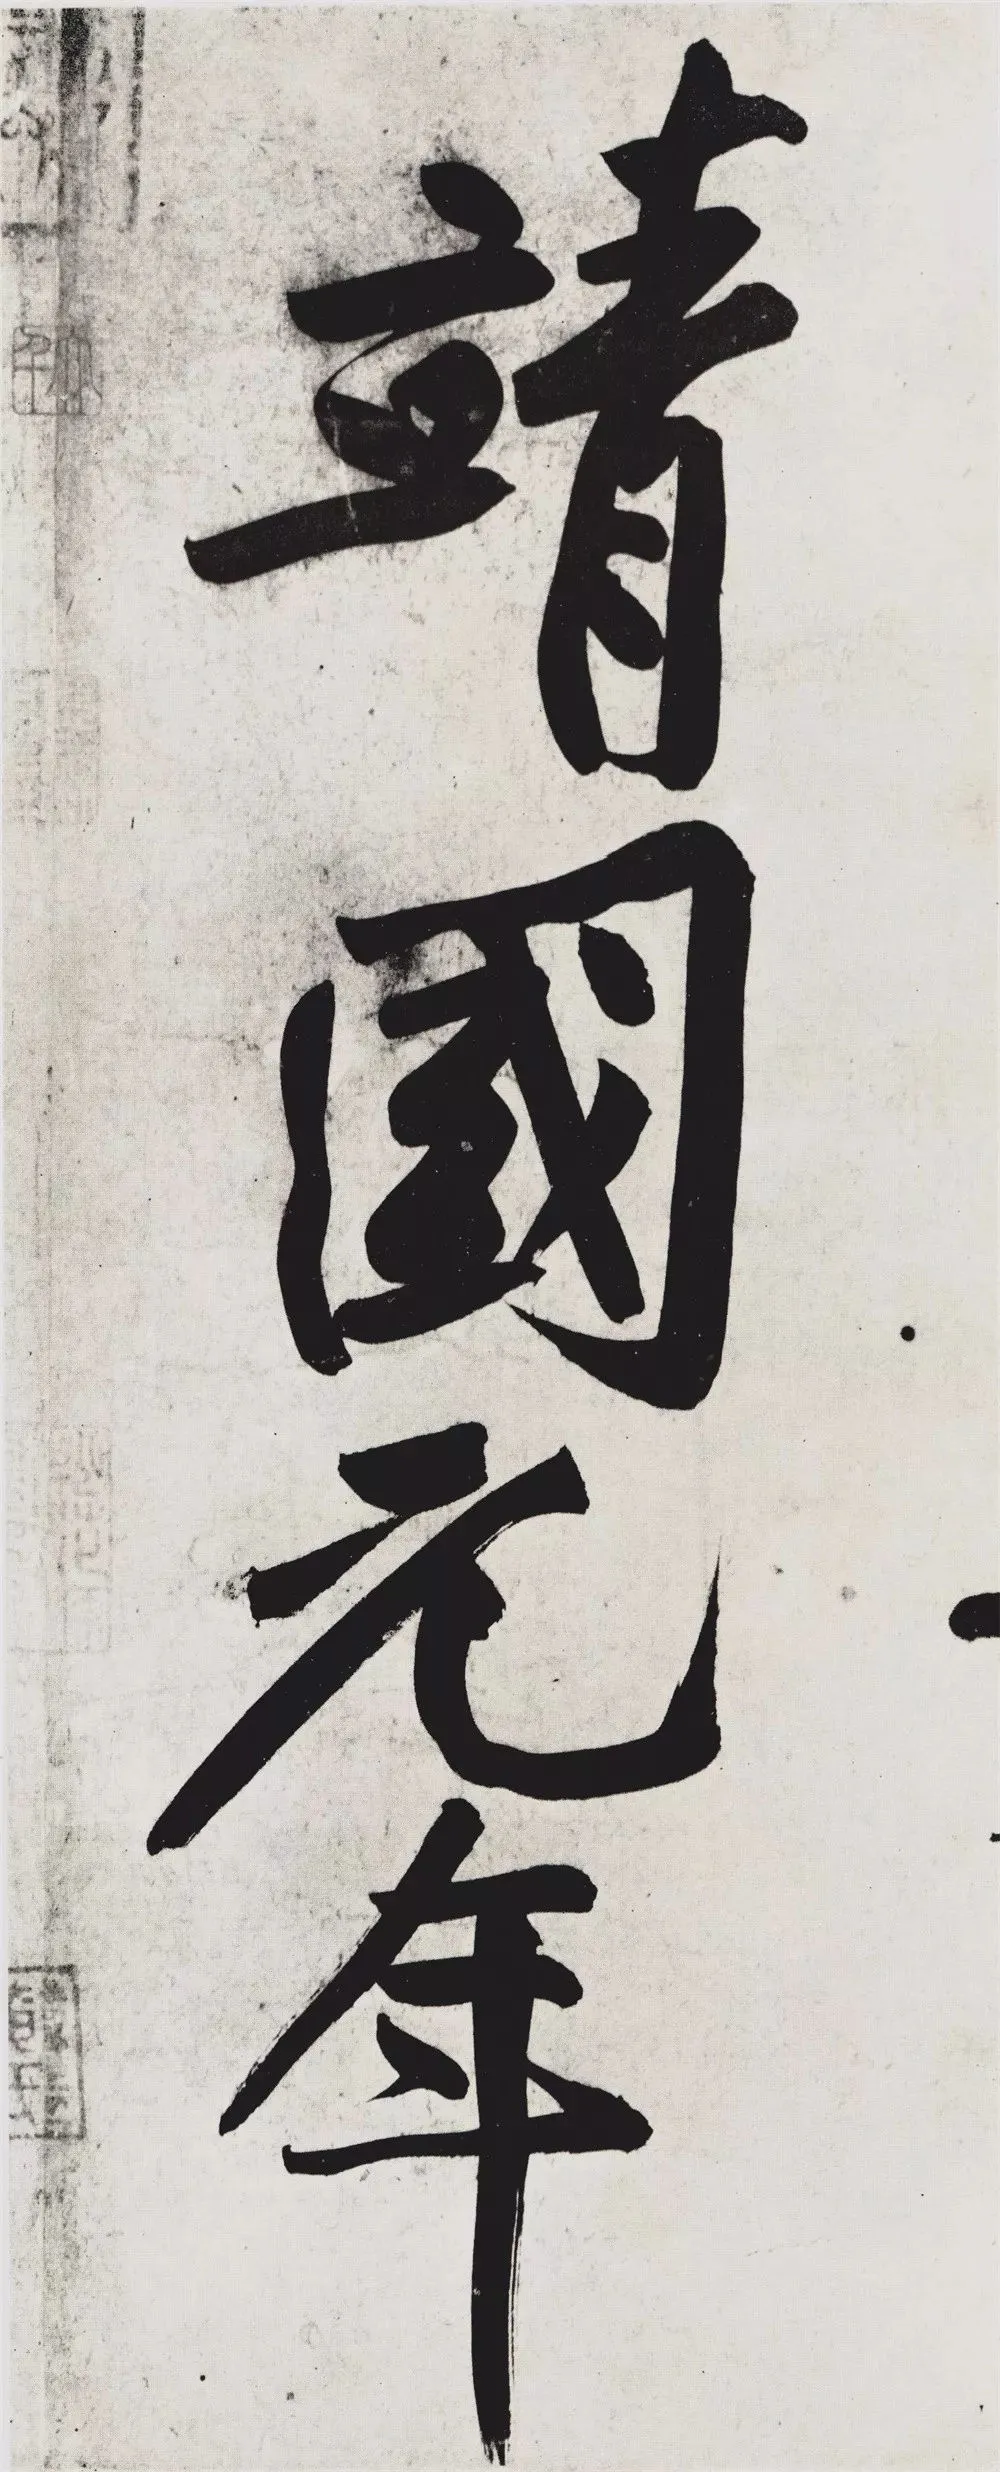 靖國元年